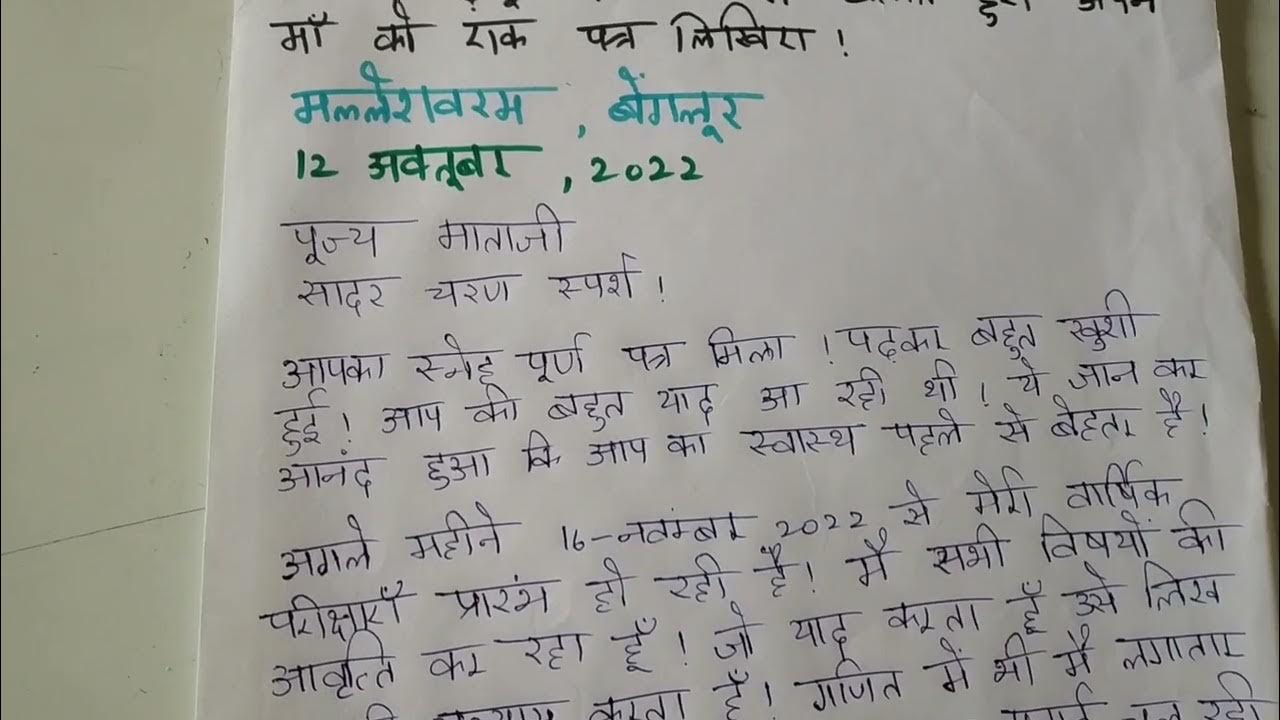 माँ को एक पत्र लिखिए !
मल्लेशवरम , बेंगलूर
12 अक्तूबर , 2022
पूज्य माताजी
सादर चरण स्पर्श !
आपका स्नेह पूर्ण पत्र मिला ! पढ़कर बहुत खुशी
हुई ! आप की बहुत याद आ रही थी ! ये जान कर
आनंद हुआ कि आप का स्वास्थ पहले से बेहतर है !
अगले महीने 16-नवंम्बर 2022 से मेरी वार्षिक
परीक्षाएँ प्रारंभ हो रही है ! मै सभी विषयों की
आवृत्ति कर रहा हूँ ! जो याद करता हूँ उसे लिख
करता हूँ ! गणित में भी मै लगातार